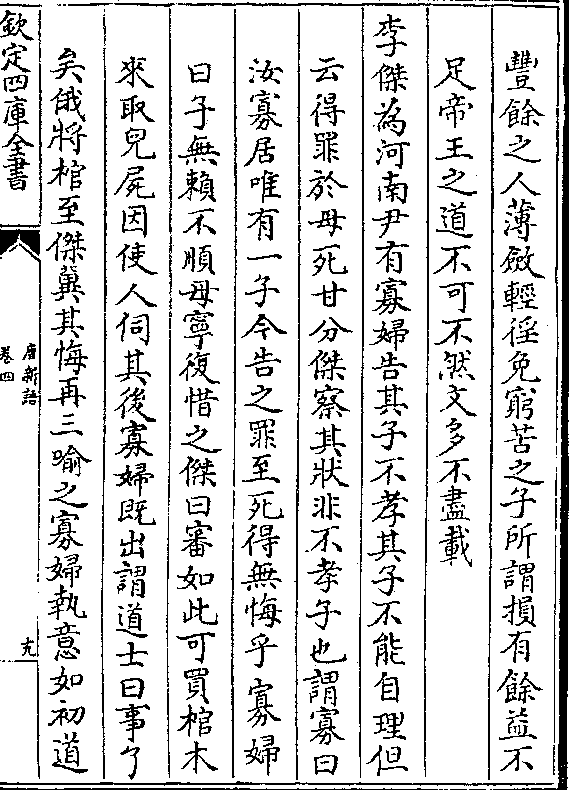 豐餘之人薄斂輕徭免窮苦之子所謂損有餘益不
足帝王之道不可不然文多不盡載
李傑為河南尹有寡婦告其子不孝其子不能自理但
云得罪於母死甘分傑察其狀非不孝子也謂寡曰
汝寡居唯有一子今告之罪至死得無悔乎寡婦
曰子無賴不順母寧復惜之傑曰審如此可買棺木
來取兒屍因使人伺其後寡婦既出謂道士曰事了
矣俄將棺至傑冀其悔再三喻之寡婦執意如初道
欽定四庫全書
唐新語
卷四